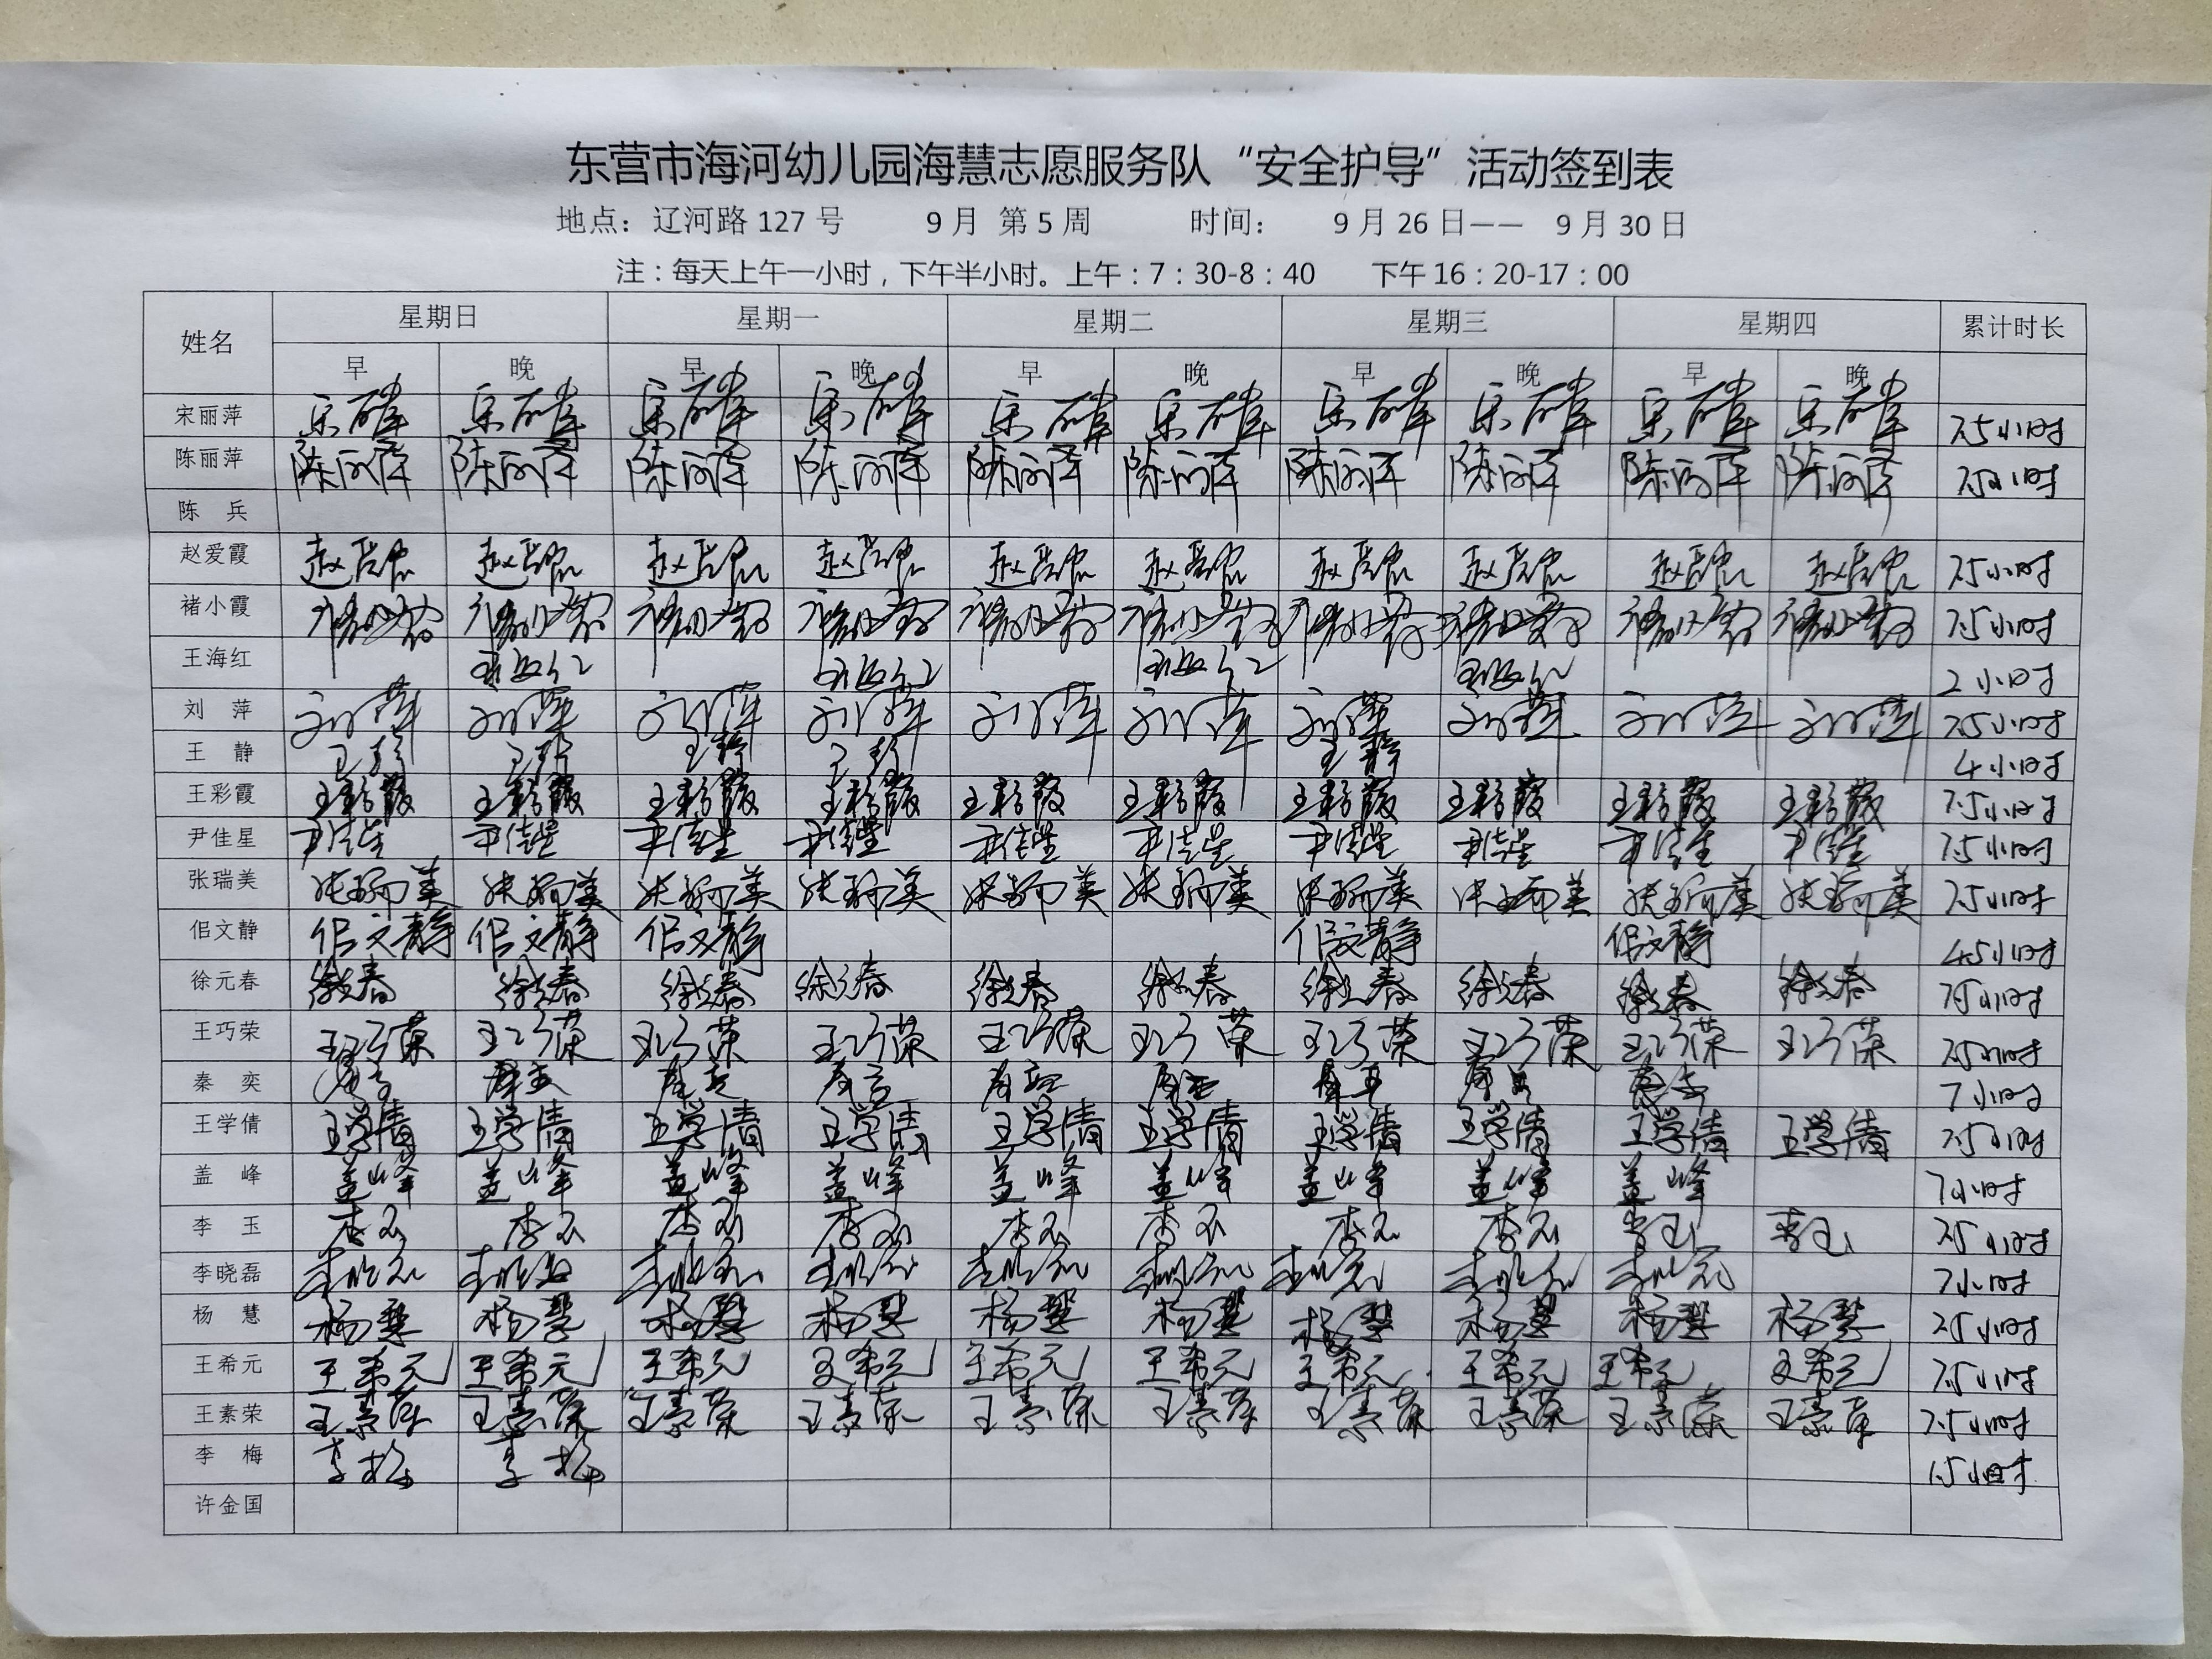 东营市海河幼儿园海慧志愿服务队“安全护导”活动签到表
地点：辽河路 127 号 9 月 第 5 周 时间： 9 月 26 日—— 9 月 30 日
注：每天上午一小时，下午半小时。上午：7：30-8：40 下午 16：20-17：00
姓名 星期日 星期一 星期二 星期三 星期四 累计时长
早 晚 早 晚 早 晚 早 晚 早 晚
宋丽萍 宋丽萍 宋丽萍 宋丽萍 宋丽萍 宋丽萍 宋丽萍 宋丽萍 宋丽萍 宋丽萍 宋丽萍 7.5小时
陈丽萍 陈丽萍 陈丽萍 陈丽萍 陈丽萍 陈丽萍 陈丽萍 陈丽萍 陈丽萍 陈丽萍 陈丽萍 7.5小时
陈 兵
赵爱霞 赵爱霞 赵爱霞 赵爱霞 赵爱霞 赵爱霞 赵爱霞 赵爱霞 赵爱霞 赵爱霞 赵爱霞 7.5小时
褚小霞 褚小霞 褚小霞 褚小霞 褚小霞 褚小霞 褚小霞 褚小霞 褚小霞 褚小霞 褚小霞 7.5小时
王海红 王海红 王海红 王海红 王海红 2小时
刘 萍 刘萍 刘萍 刘萍 刘萍 刘萍 刘萍 刘萍 刘萍 刘萍 刘萍 7.5小时
王 静 王静 王静 王静 王静 王静 4小时
王彩霞 王彩霞 王彩霞 王彩霞 王彩霞 王彩霞 王彩霞 王彩霞 王彩霞 王彩霞 王彩霞 7.5小时
尹佳星 尹佳星 尹佳星 尹佳星 尹佳星 尹佳星 尹佳星 尹佳星 尹佳星 尹佳星 尹佳星 7.5小时
张瑞美 张瑞美 张瑞美 张瑞美 张瑞美 张瑞美 张瑞美 张瑞美 张瑞美 张瑞美 张瑞美 7.5小时
佀文静 佀文静 佀文静 佀文静 佀文静 佀文静 4.5小时
徐元春 徐元春 徐元春 徐元春 徐元春 徐元春 徐元春 徐元春 徐元春 徐元春 徐元春 7.5小时
王巧荣 王巧荣 王巧荣 王巧荣 王巧荣 王巧荣 王巧荣 王巧荣 王巧荣 王巧荣 王巧荣 7.5小时
秦 奕 秦奕 秦奕 秦奕 秦奕 秦奕 秦奕 秦奕 秦奕 秦奕 7小时
王学倩 王学倩 王学倩 王学倩 王学倩 王学倩 王学倩 王学倩 王学倩 王学倩 王学倩 7.5小时
盖 峰 盖峰 盖峰 盖峰 盖峰 盖峰 盖峰 盖峰 盖峰 盖峰 7小时
李 玉 李玉 李玉 李玉 李玉 李玉 李玉 李玉 李玉 李玉 李玉 7.5小时
李晓磊 李晓磊 李晓磊 李晓磊 李晓磊 李晓磊 李晓磊 李晓磊 李晓磊 李晓磊 7小时
杨 慧 杨慧 杨慧 杨慧 杨慧 杨慧 杨慧 杨慧 杨慧 杨慧 杨慧 7.5小时
王希元 王希元 王希元 王希元 王希元 王希元 王希元 王希元 王希元 王希元 王希元 7.5小时
王素荣 王素荣 王素荣 王素荣 王素荣 王素荣 王素荣 王素荣 王素荣 王素荣 王素荣 7.5小时
李 梅 李梅 李梅 1.5小时
许金国